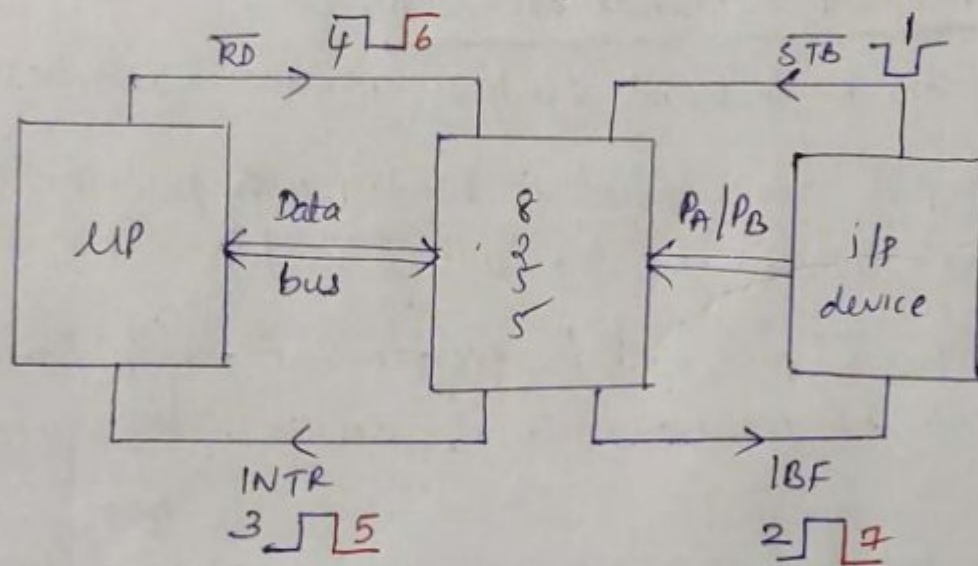 R̅D̅ 4 6 S̅T̅B̅ 1
μP
Data
bus
8
2
5
5
PA/PB
i/p
device
INTR
3 5
IBF
2 7